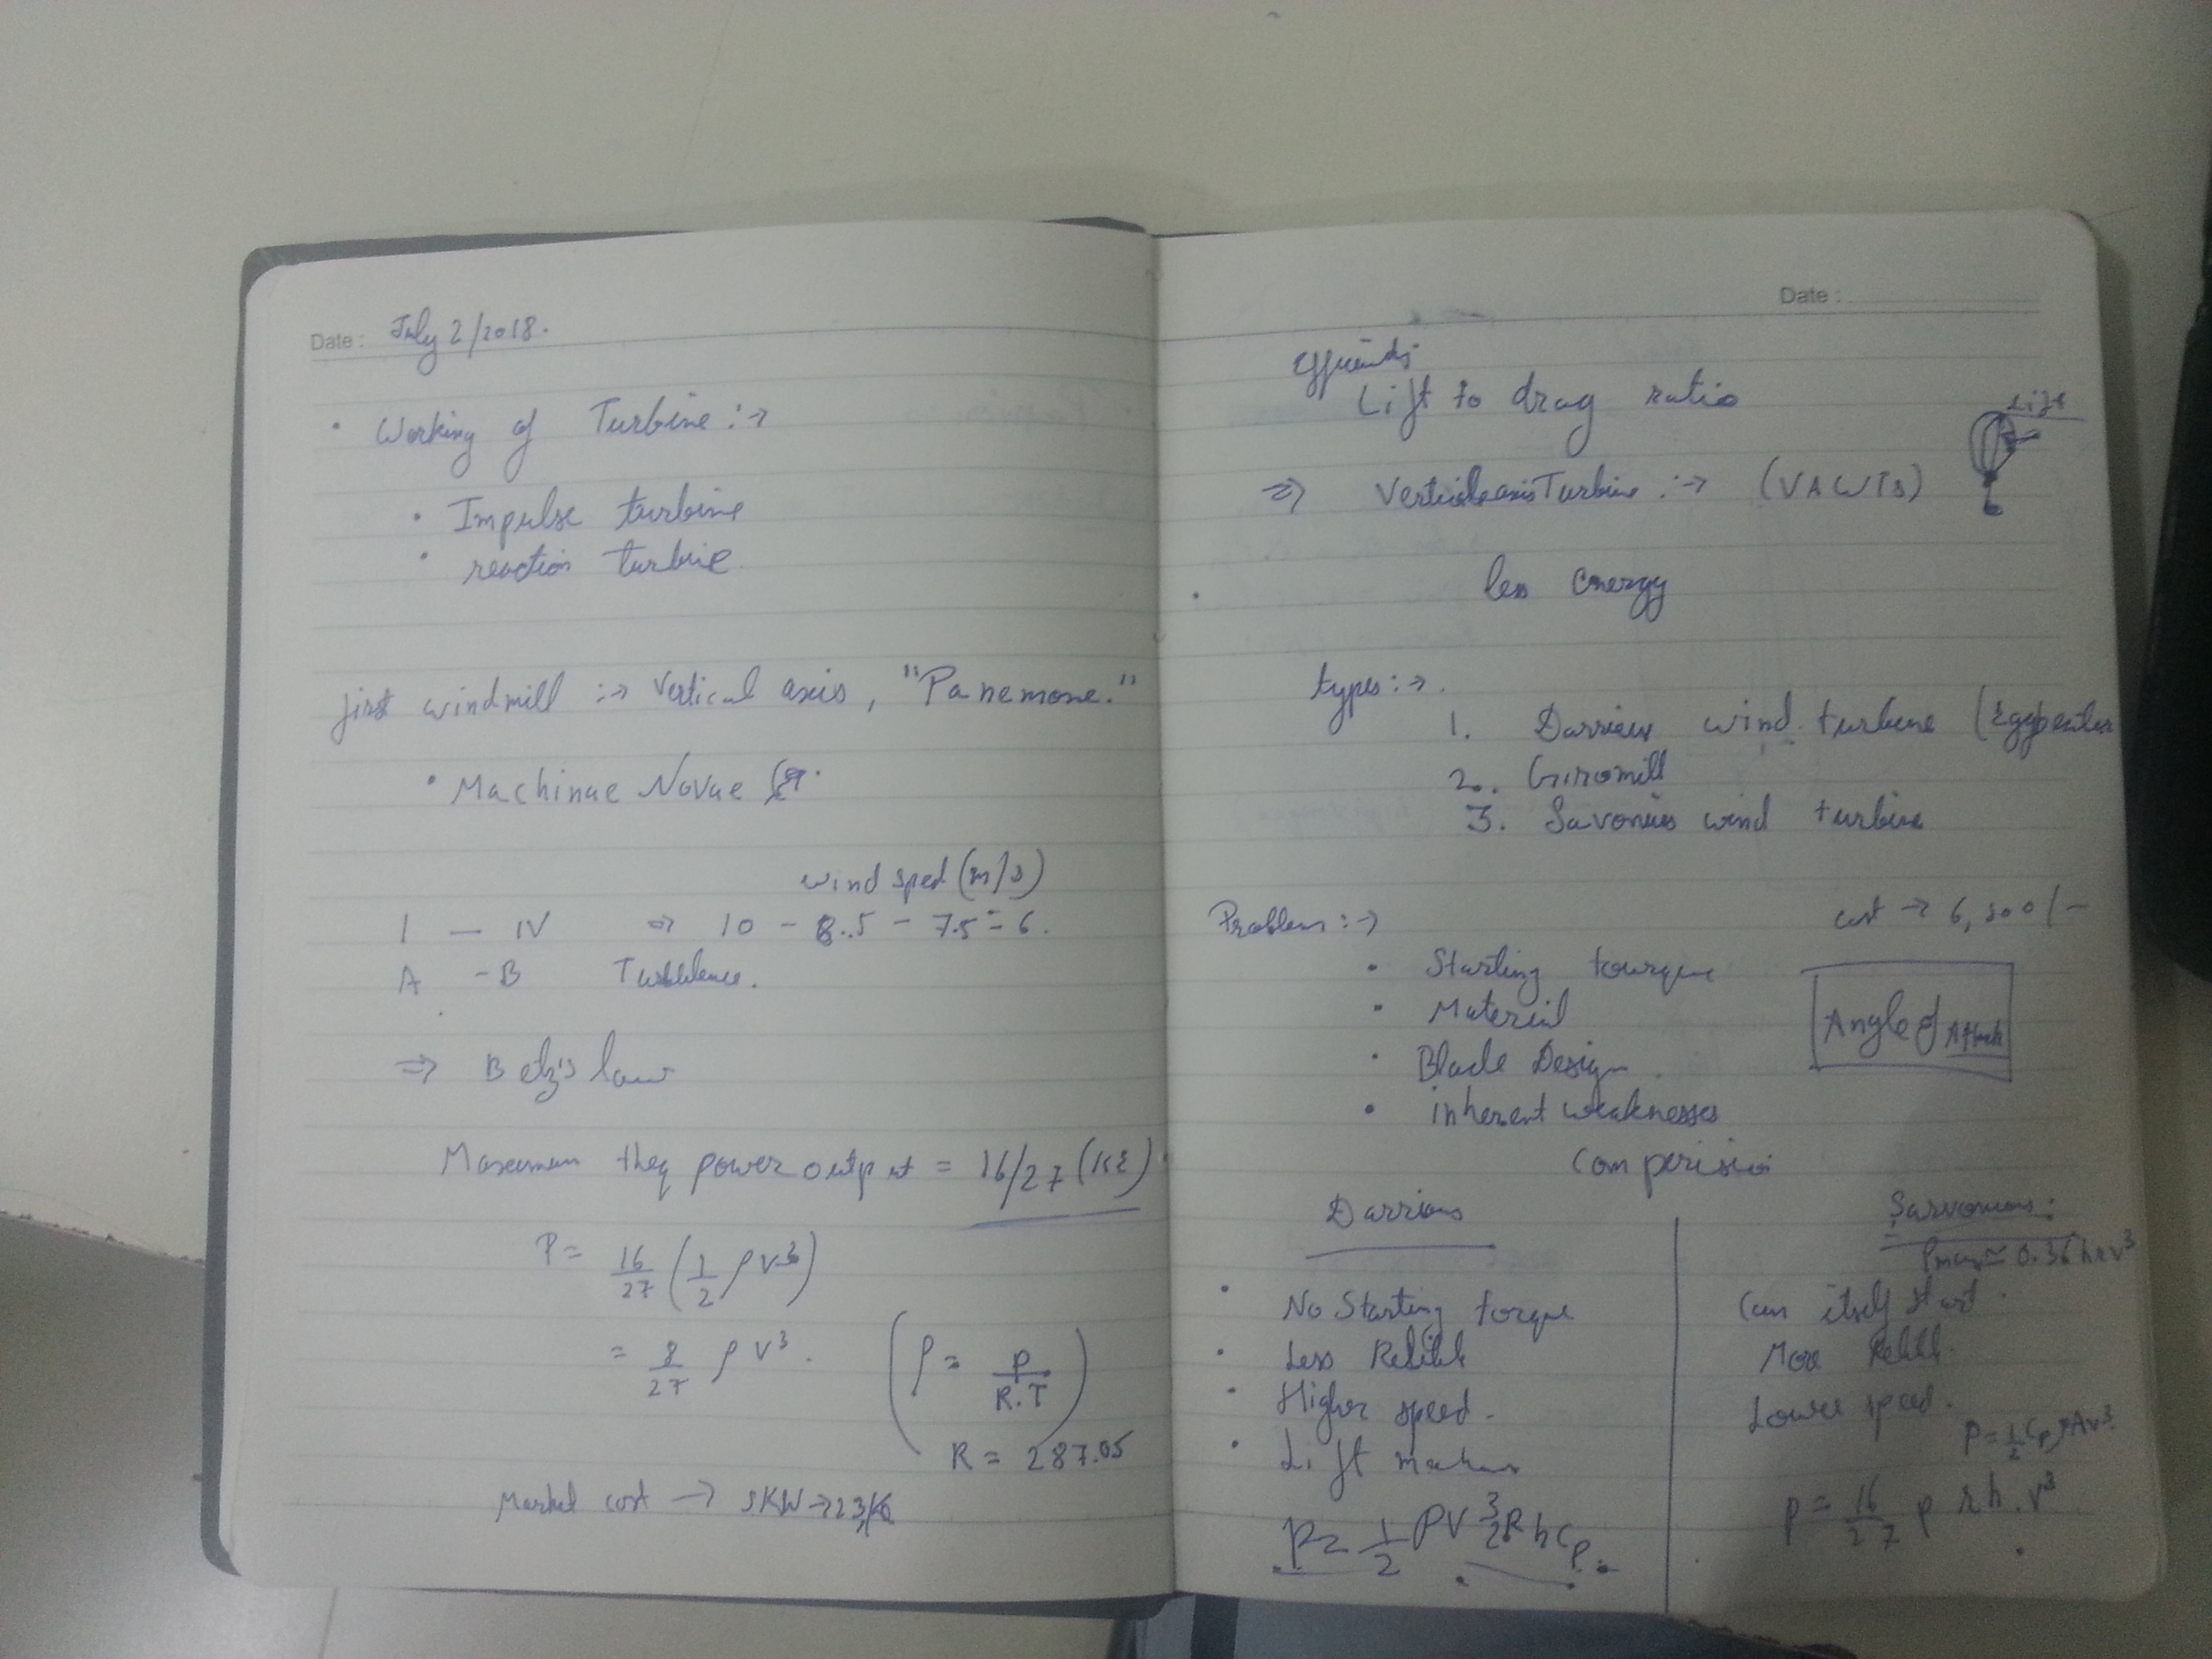 Date : July 2/2018.
• Working of Turbine :→
• Impulse turbine
• reaction turbine
first windmill :→ Vertical axis, "Panemone."
• Machinae Novae
wind sped (m/s)
I — IV ⇒ 10 - 8.5 - 7.5 - 6.
A - B
⇒ Betz's law
power output = 16/27 (KE)
P = 16/27 (1/2 ρ v³)
= 8/27 ρ v³.
(ρ = p/R.T)
R = 287.05
Market cost →
Date :
Lift to drag ratio
Lift
⇒ Turbine :→ (VAWTs)
less energy
types :→
1. Darrieus wind turbine
2. Giromill
3. Savonius wind turbine
Problem :→
cost →
• Starting tourque
• Material
• Blade Design
• inherent weaknesses
Angle of Attack
Comperision
Darrious
• No Starting torque
• Less
• Higher speed.
• Lift
P = 1/2 ρV³ 2R h Cp.
Sarvonious :
Pmax ≃ 0.36 h r v³
Can itself start.
More
Lower speed.
P = 1/2 Cp ρAv³
P = 16/27 ρ r h . v³